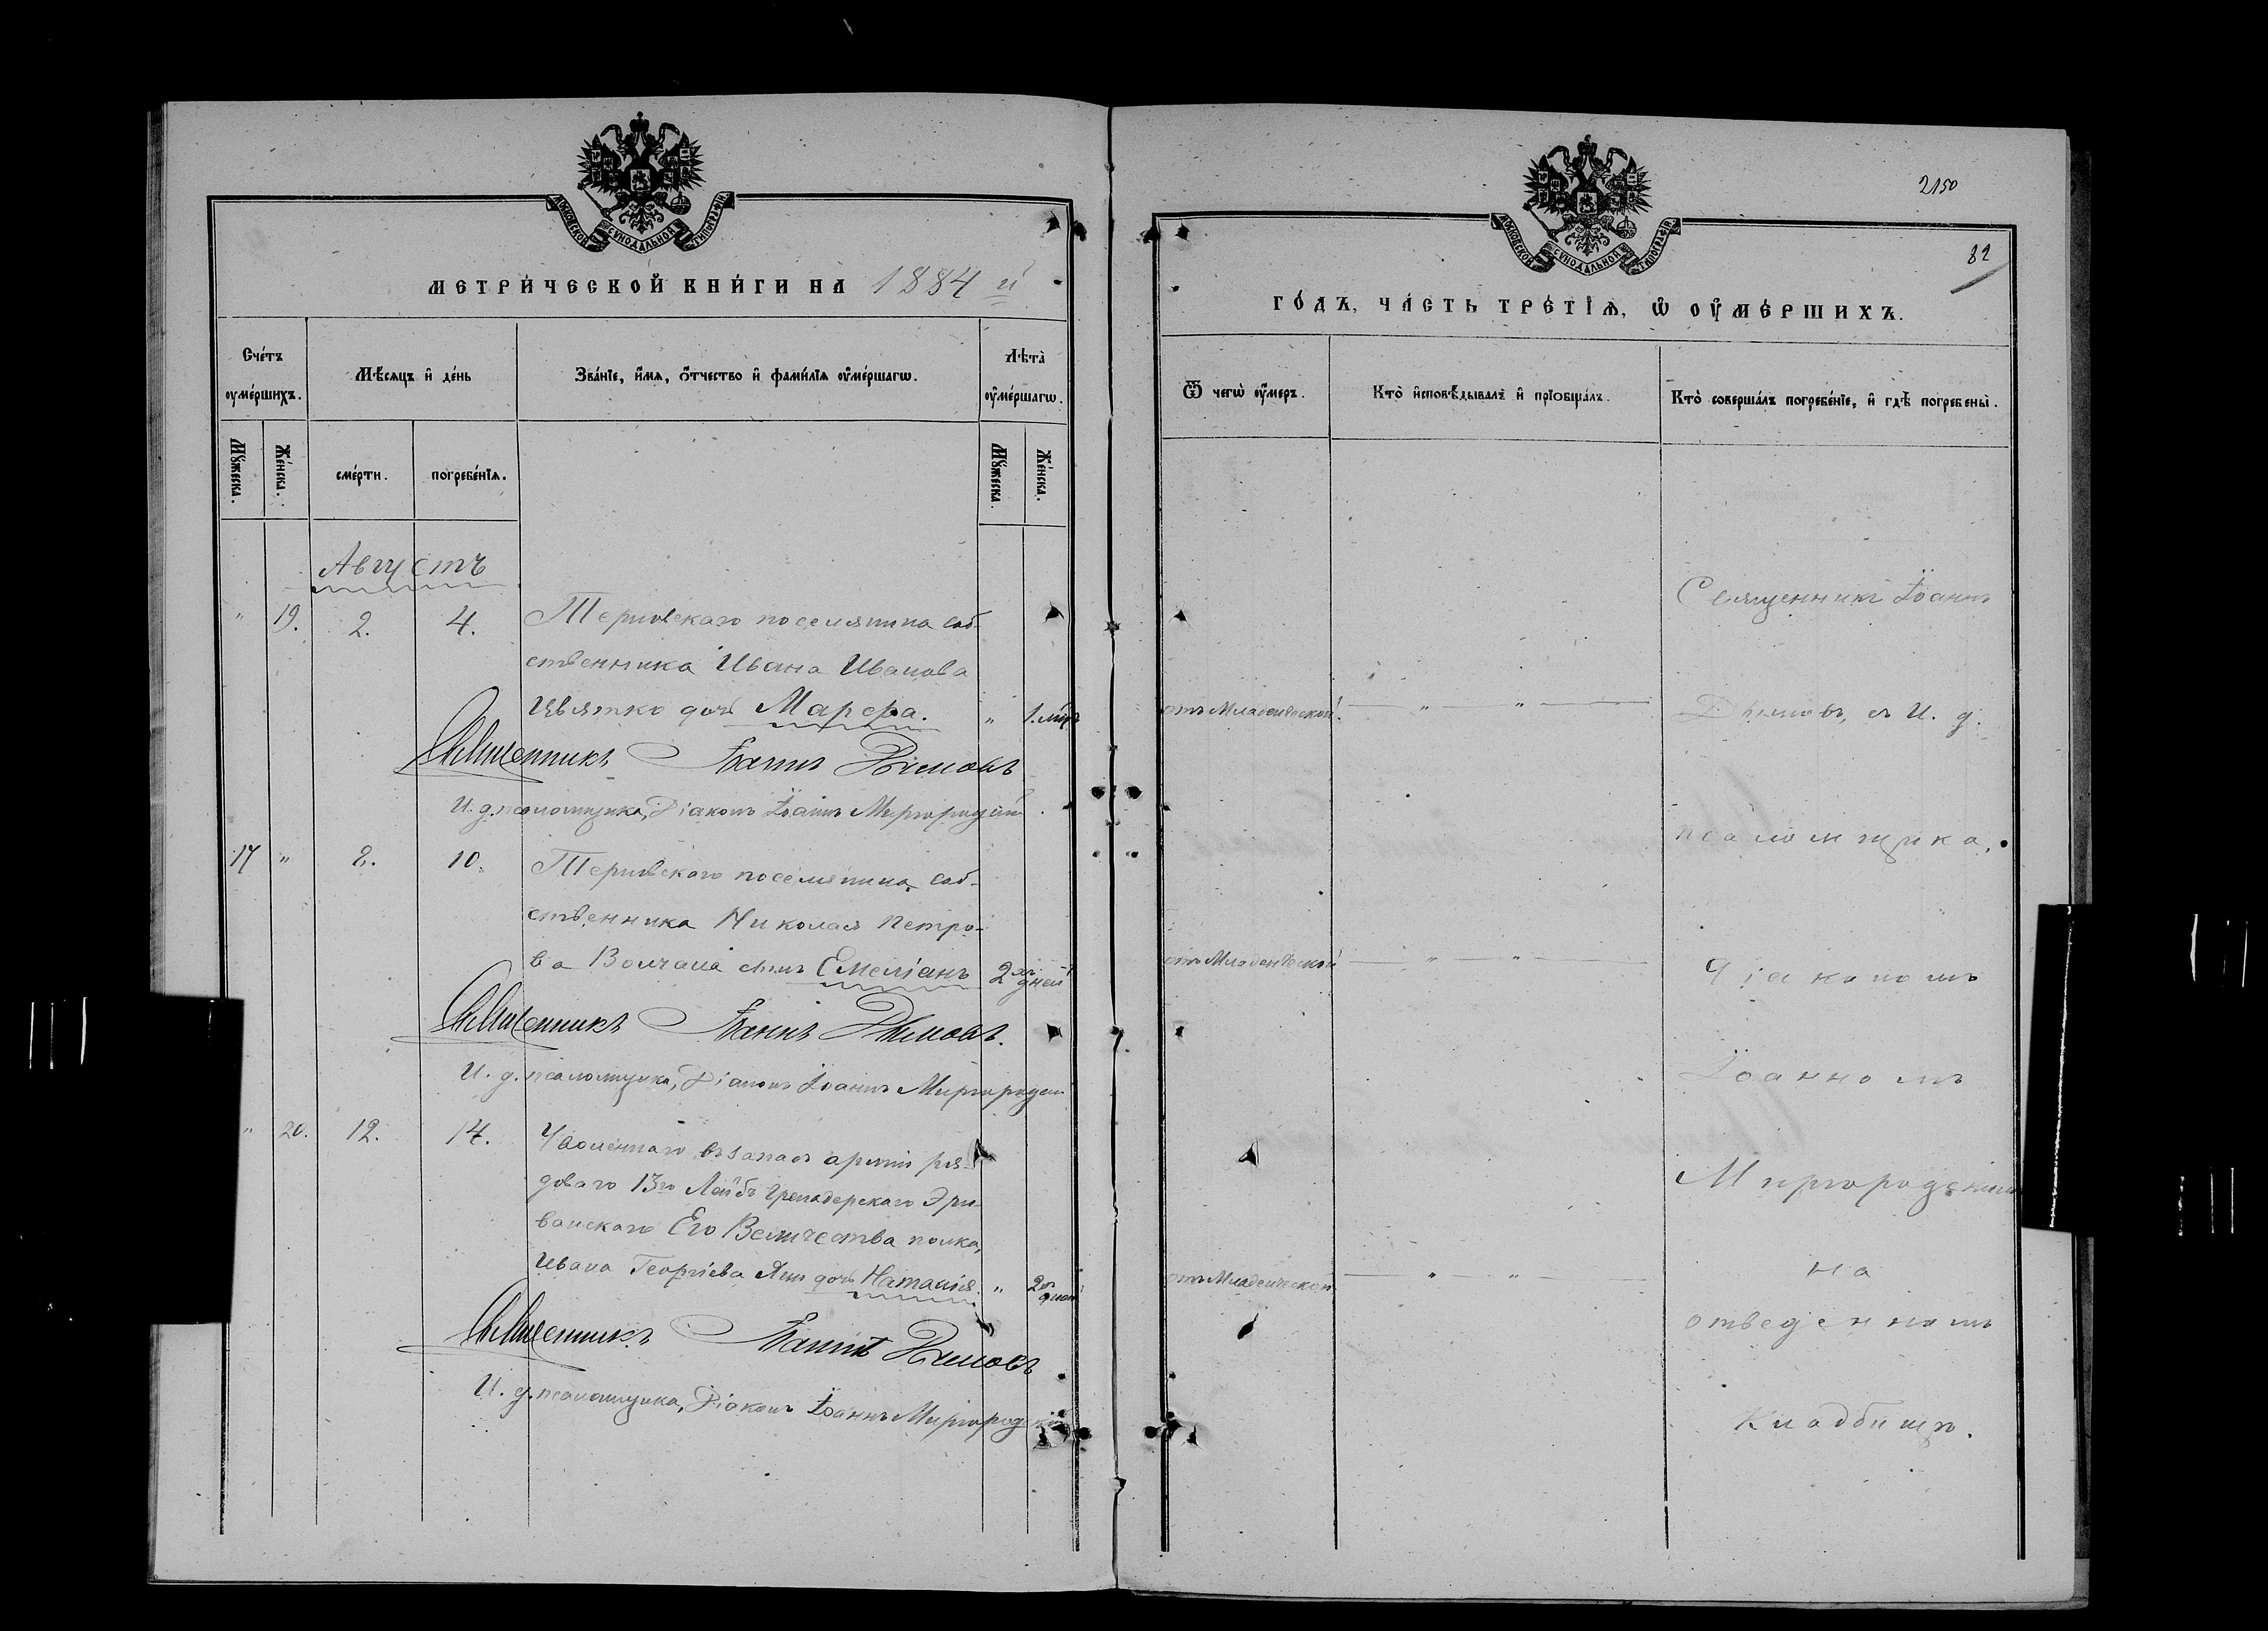 МОСКОВСКОЙ СУНОДАЛЬНОЙ ТИПОГРАФІИ
МЕТРИ́ЧЕСКОЙ КНИ́ГИ НА 1884 й
Сче́тъ оу҆ме́ршихъ.
Мѣ́сяцъ и҆ де́нь
Зва́нїе, и҆́мя, ѻ҆́тчество и҆ фами́лїя оу҆ме́ршагѡ.
Лѣта̀ оу҆ме́ршагѡ.
Мꙋ́жеска.
Же́нска.
сме́рти.
погребе́нїя.
Мꙋ́жеска.
Же́нска.
Августъ
" 19. 2. 4. Терновскаго поселянина соб-
ственника Ивана Иванова
Цвятко дочь Марѳа. " 1. мѣс.
Священникъ Іоаннъ Дымовъ
И. д. псаломщика, Діаконъ Іоаннъ Миргородскій
17 " 8. 10. Терновскаго поселянина соб-
ственника Николая Петро-
ва Волчана сынъ Емеліанъ 2хъ дней
Священникъ Іоаннъ Дымовъ.
И. д. псаломщика, Діаконъ Іоаннъ Миргородскій
" 20. 12. 14. Уволеннаго въ запасъ арміи ря-
доваго 13го Лейбъ Гренадерскаго Эри-
ванскаго Его Величества полка,
Ивана Георгіева Яни дочь Наталія. " 2хъ дней
Священникъ Іоаннъ Дымовъ
И. д. псаломщика, Діаконъ Іоаннъ Миргородскій
2150
82
МОСКОВСКОЙ СУНОДАЛЬНОЙ ТИПОГРАФІИ
ГО́ДЪ, ЧА́СТЬ ТРЕ́ТЇѦ, Ѡ҆ ОУ҆МЕ́РШИХЪ.
Ѿ чегѡ̀ оу҆́меръ.
Кто̀ и҆сповѣ́дывалъ и҆ прїобща́лъ.
Кто̀ соверша́лъ погребе́нїе, и҆ гдѣ̀ погребены̀.
отъ Младенческой.
" "
отъ Младенческой
" "
отъ Младенческой
" "
Священникъ Іоаннъ
Дымовъ, съ И. д.
псаломщика,
діакономъ
Іоанномъ
Миргородскимъ
на
отведенномъ
кладбищѣ.